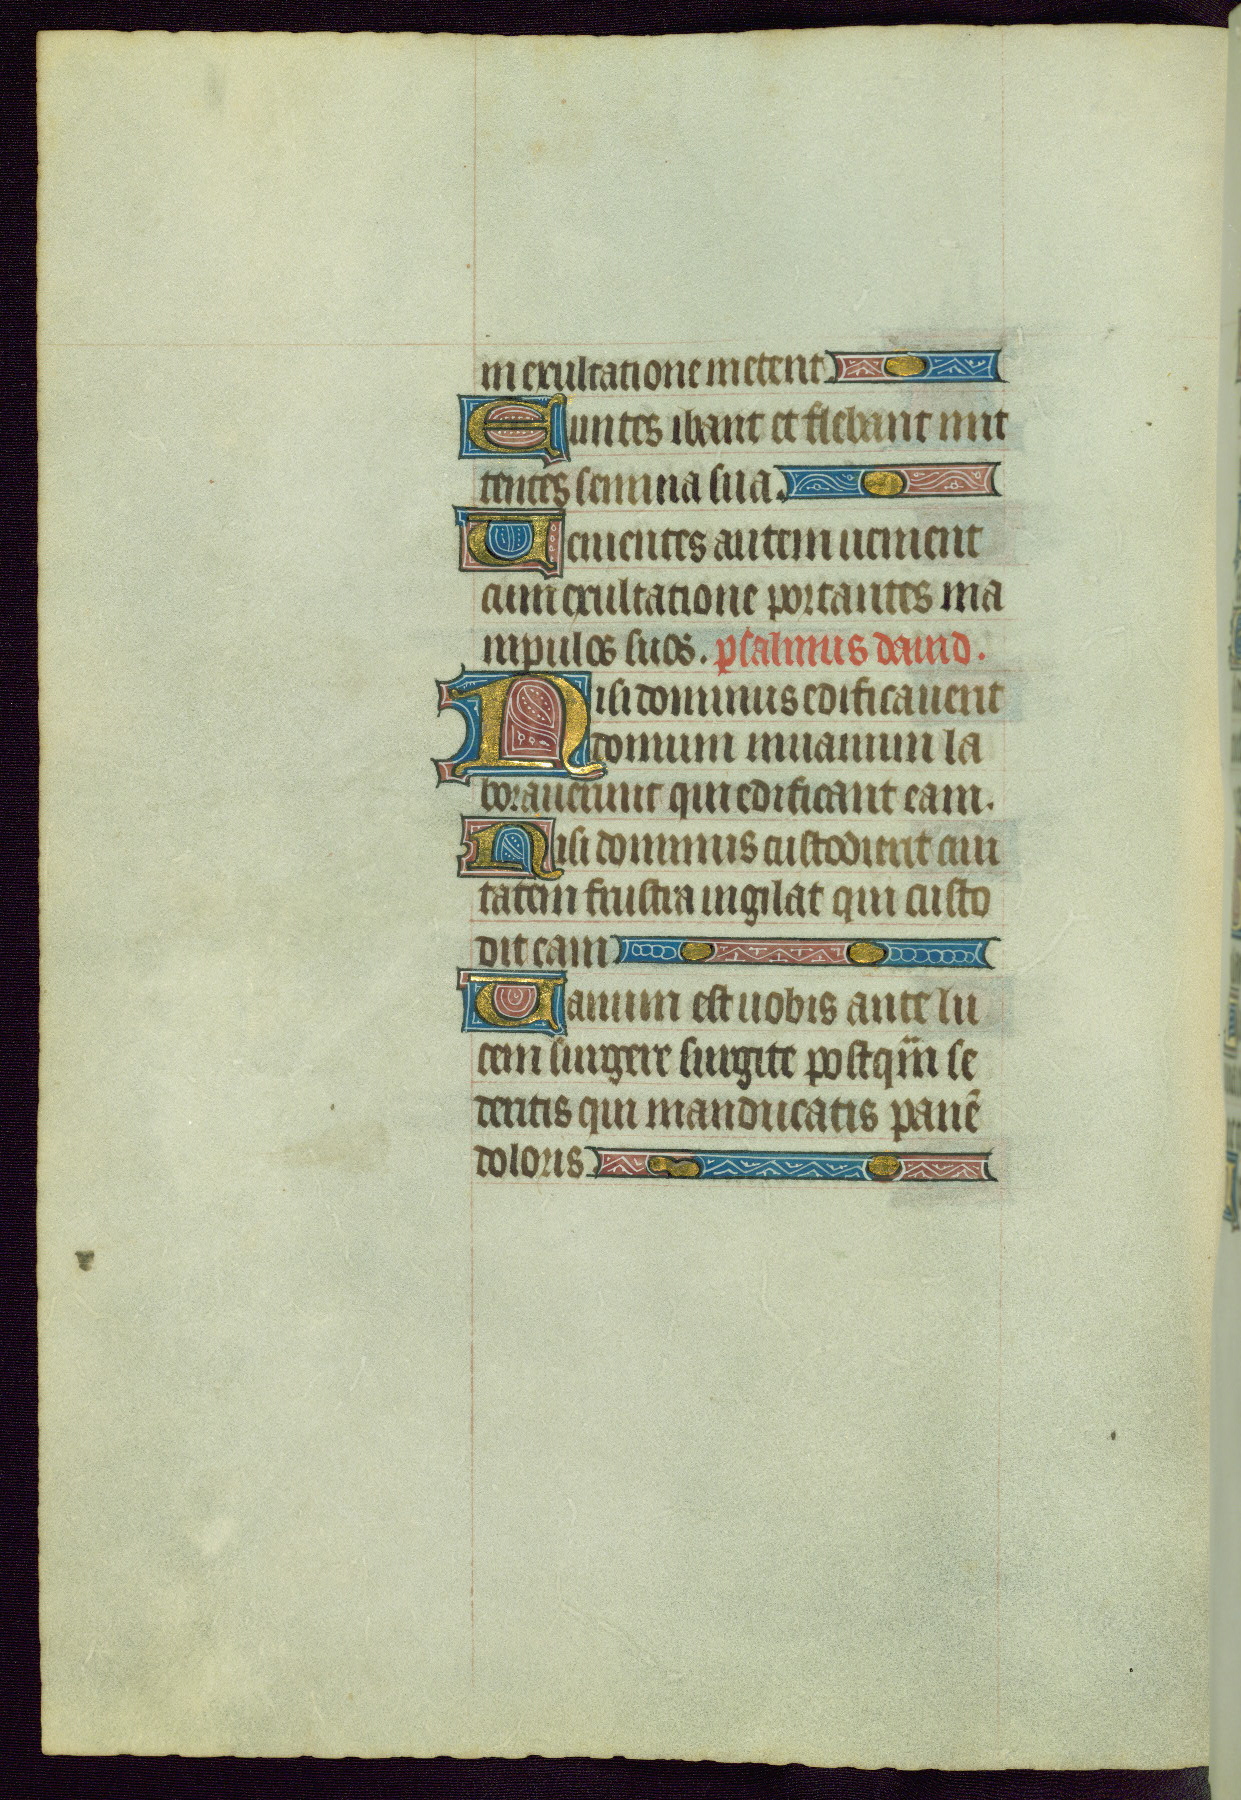 in exultatione metent.
Euntes ibant et flebant mit
tentes semina sua.
Uenientes autem uenient
cum exultatione portantes ma
nipulos suos. psalmus dauid.
Nisi dominus edificauerit
domum inuanum la
borauerunt qui edificant eam.
Nisi dominus custodierit ciui
tatem frustra uigilat qui custo
dit eam
Uanum est uobis ante lu
cem surgere surgite postqm̄ se
deritis qui manducatis panē
doloris